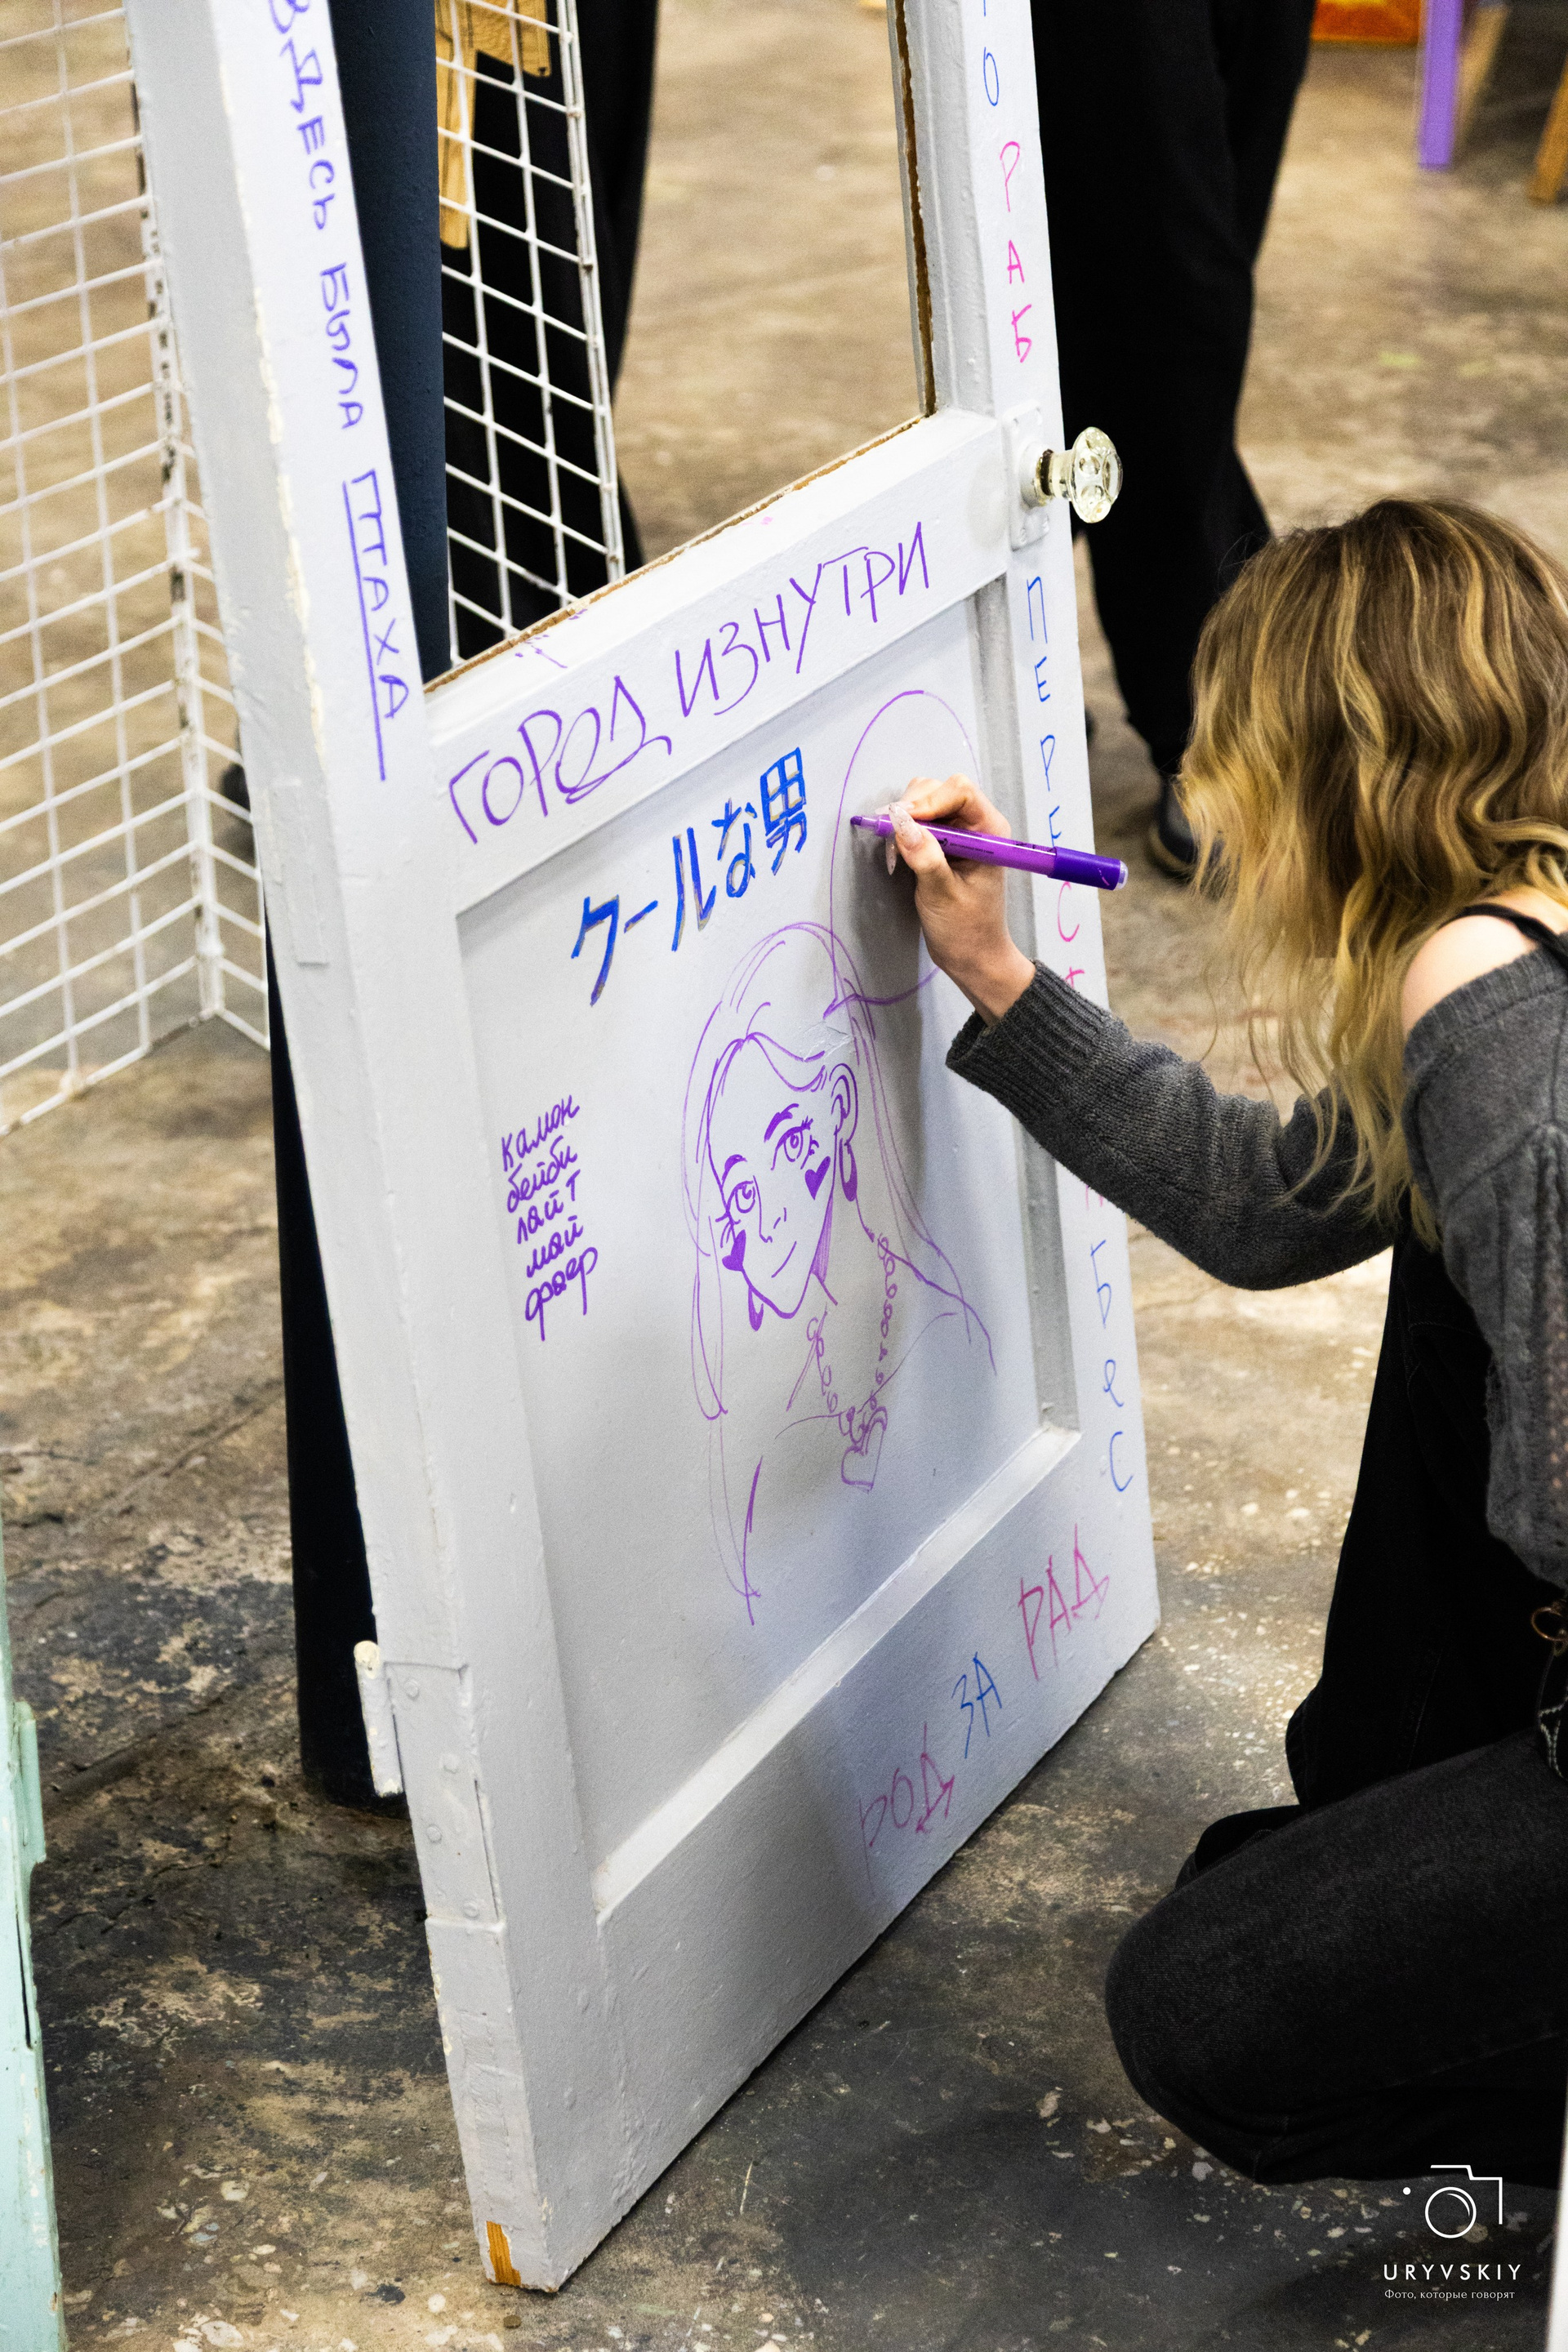 ЗДЕСЬ БЫЛА ПТАХА
ГОРОД ИЗНУТРИ
クールな男
камон
бейби
лайт
май
фаер
РАБ
РОД ЗА РАД
URYVSKIY
Фото, которые говорят